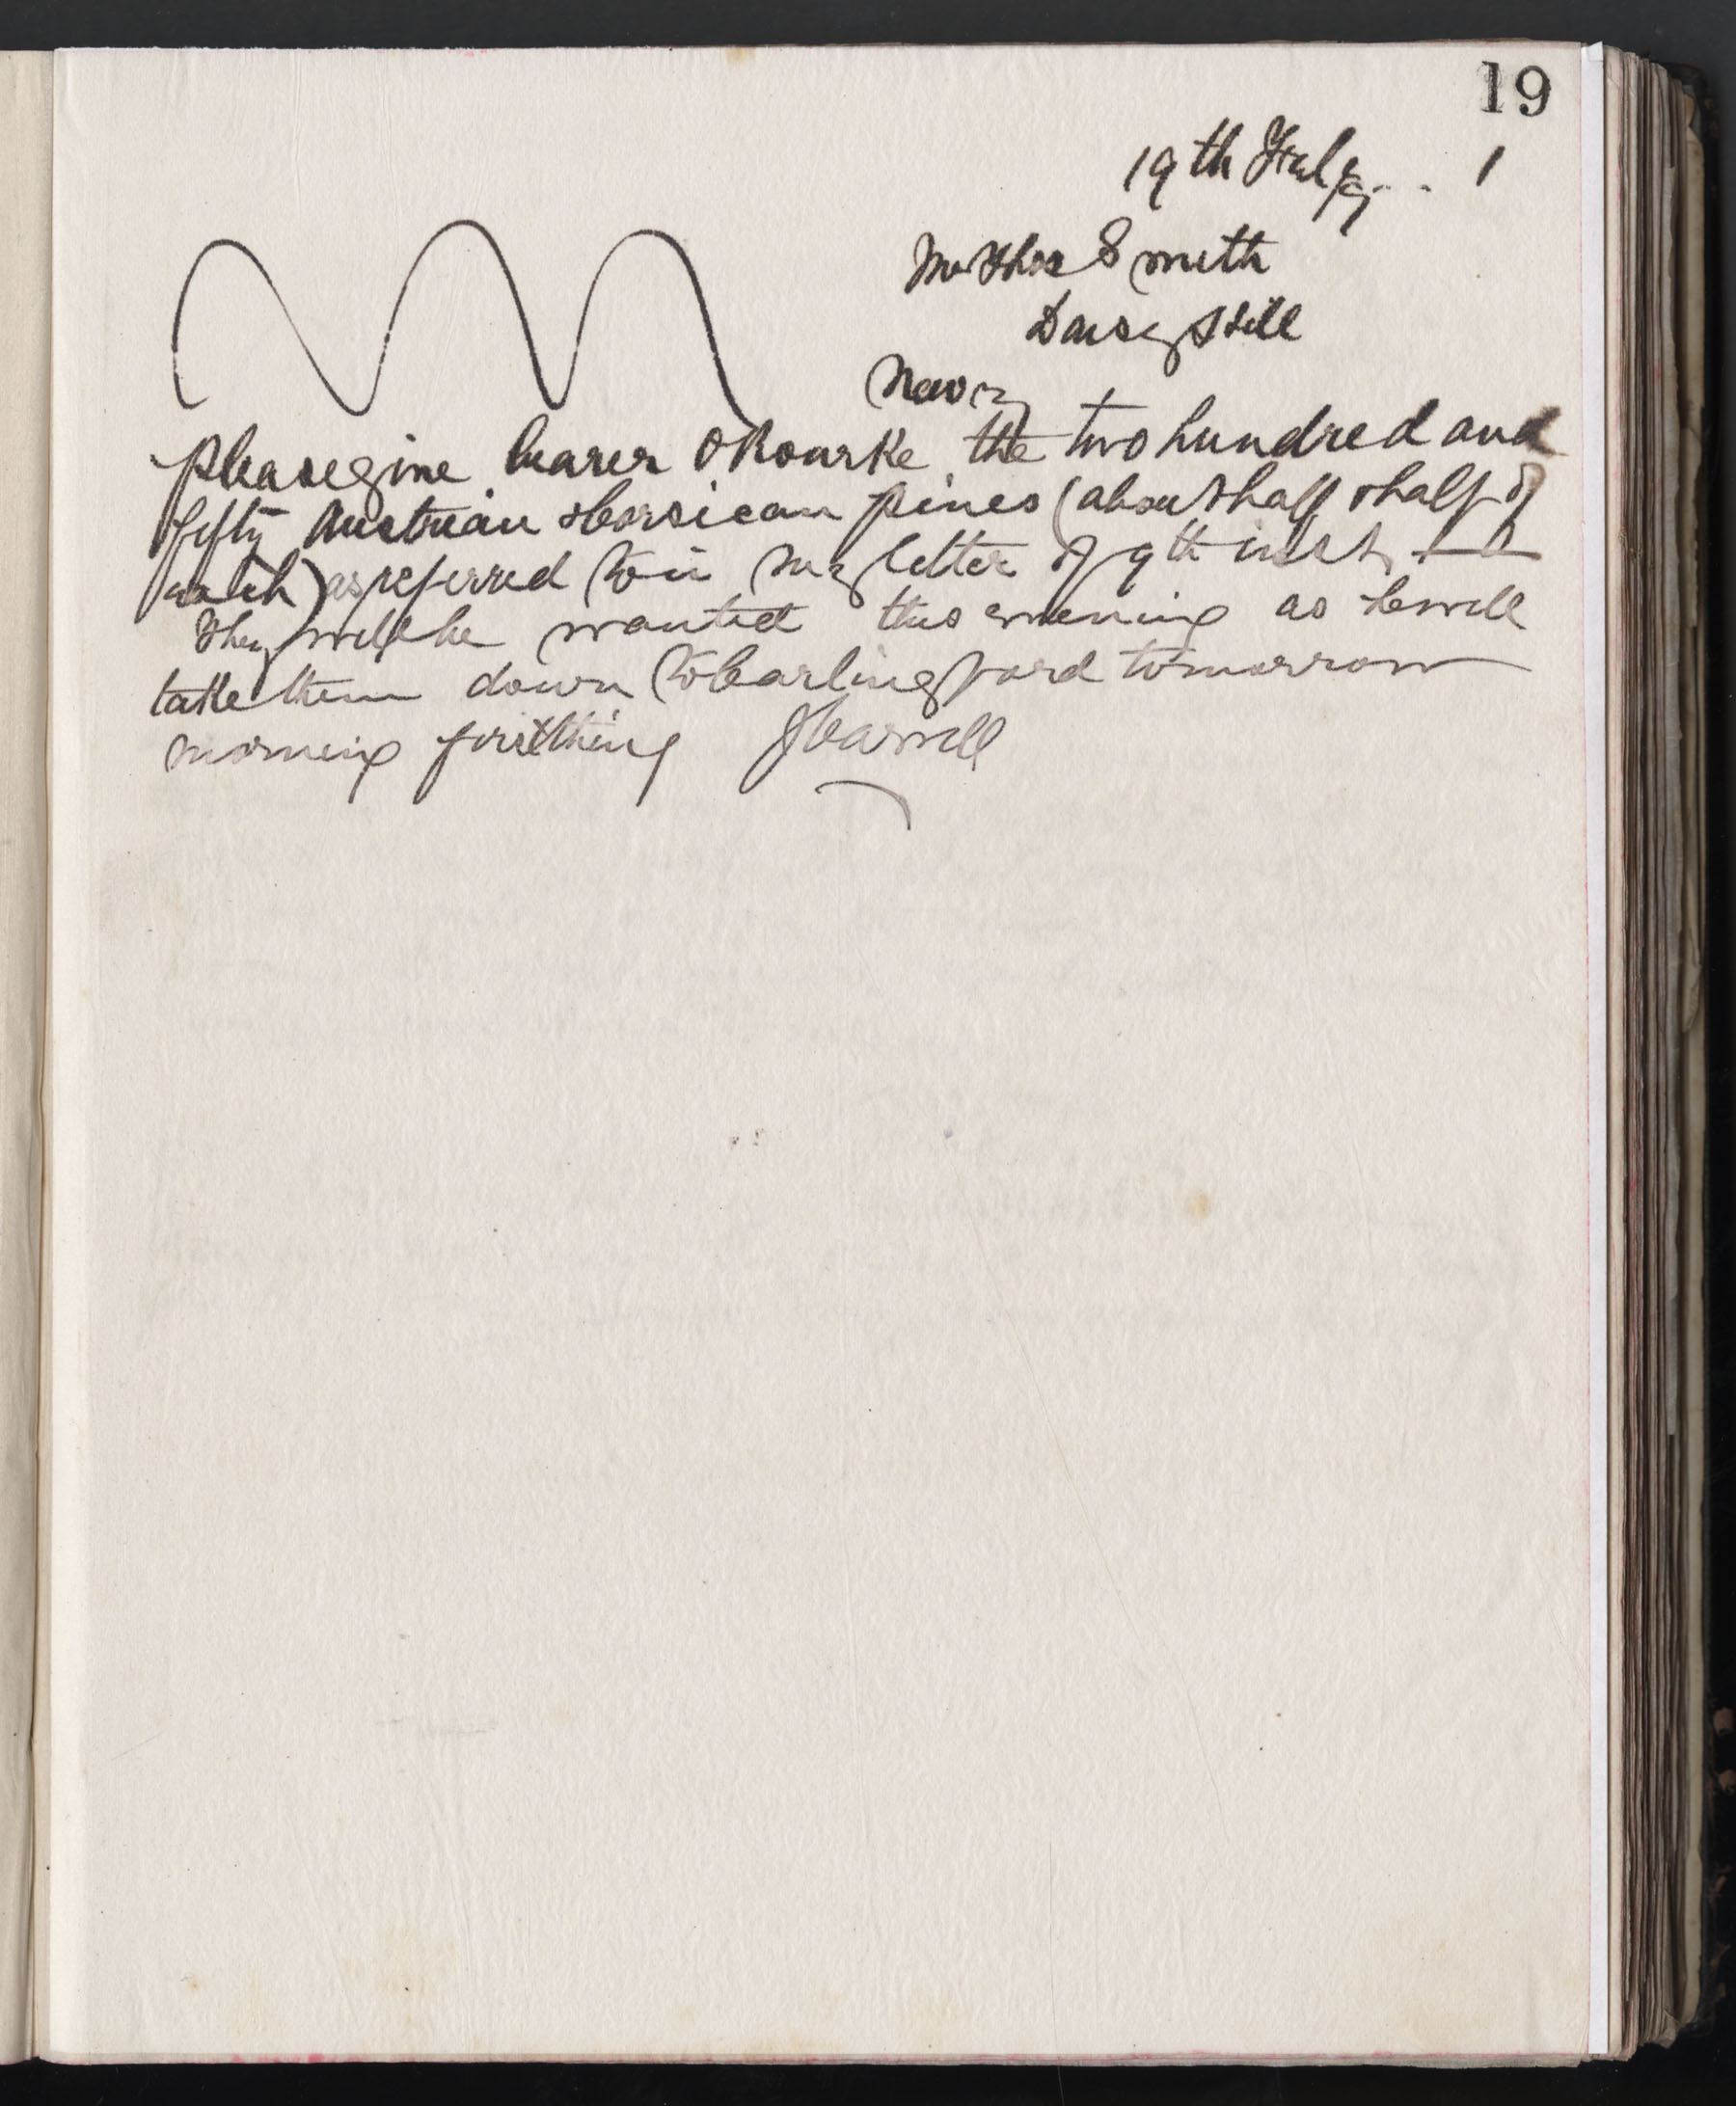 19
19th Feby.. 1
Mr Thos Smith
Daisy Hill
Newry
please give bearer O Rourke the two hundred and
fifty Austrian & Corsican pines (about half & half of
each) as referred to in my letter of 9th inst
They will be wanted this evening as he will
take them down to Carlingford tomorrow
morning first thing